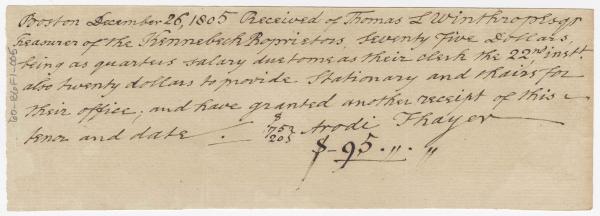 Boston December 26, 1805 Received of Thomas L Winthrop Esqr
Treasurer of the Kennebeck Proprietors, Seventy five Dollars,
being as quarters salary due to me as their clerk the 22nd inst.
also twenty dollars to provide Stationary and chairs for
their office; and have granted another receipt of this
tenor and date
$
75
20
Arodi Thayer
$ 95